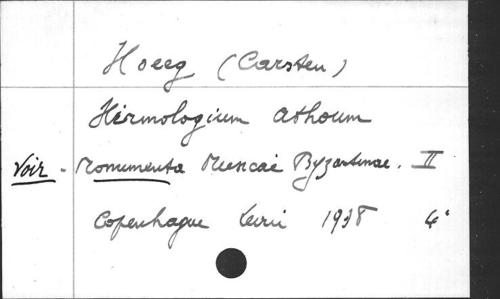 Hoeeg (Carsten)
Hirmologium Athoum
Voir - Monumenta Musicae Byzantinae. II
Copenhague Levin 1938 4°